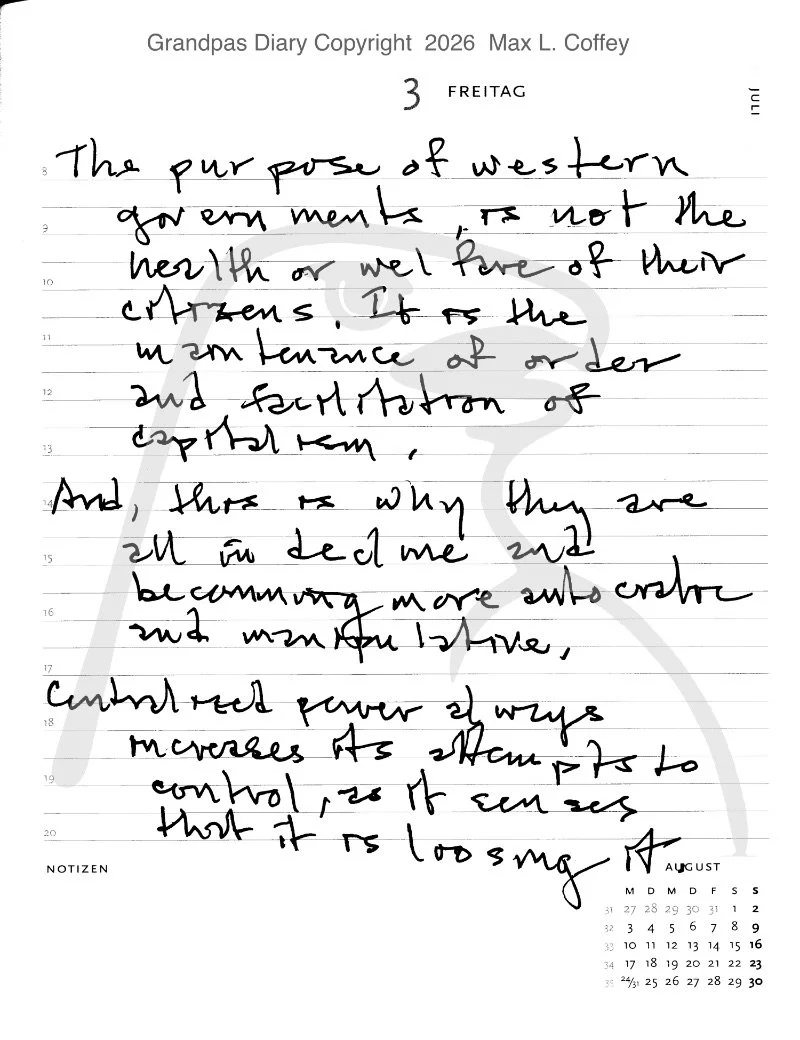 Grandpas Diary Copyright 2026 Max L. Coffey
3 FREITAG
JULI
8 The purpose of western
9 governments, is not the
10 health or welfare of their
11 citizens. It is the
maintenance of order
12 and facilitation of
13 capitalism.
14 And, this is why they are
15 all in decline and
becomming more autocratic
16 and manipulative,
17
18 Centralized power always
increases its attempts to
19 control, as it senses
20 that it is loosing it
NOTIZEN
AUGUST
M D M D F S S
31 27 28 29 30 31 1 2
32 3 4 5 6 7 8 9
33 10 11 12 13 14 15 16
34 17 18 19 20 21 22 23
35 24/31 25 26 27 28 29 30